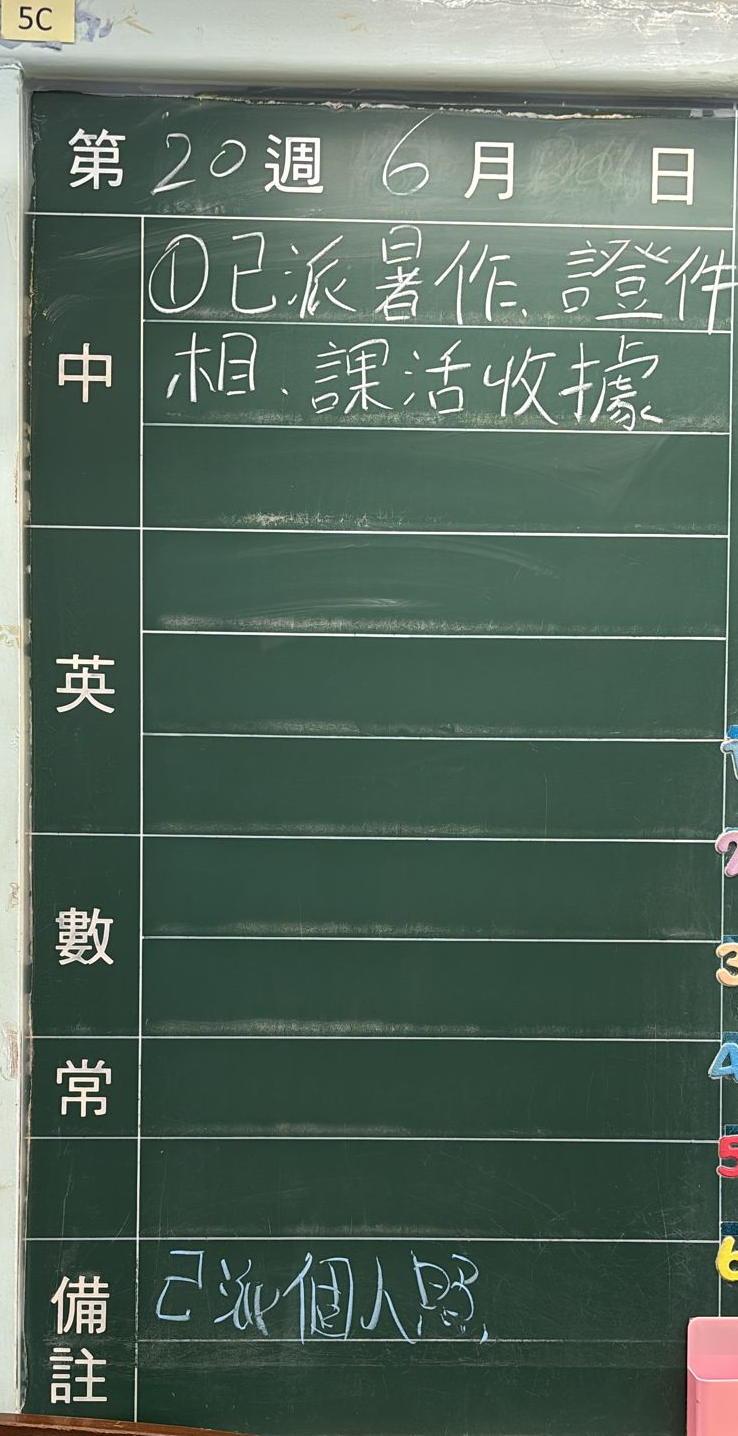 5C
第20週 6月 日
中
①已派暑作、證件
相、課活收據
英
數
常
備註
已派個人照
3
4
5
6